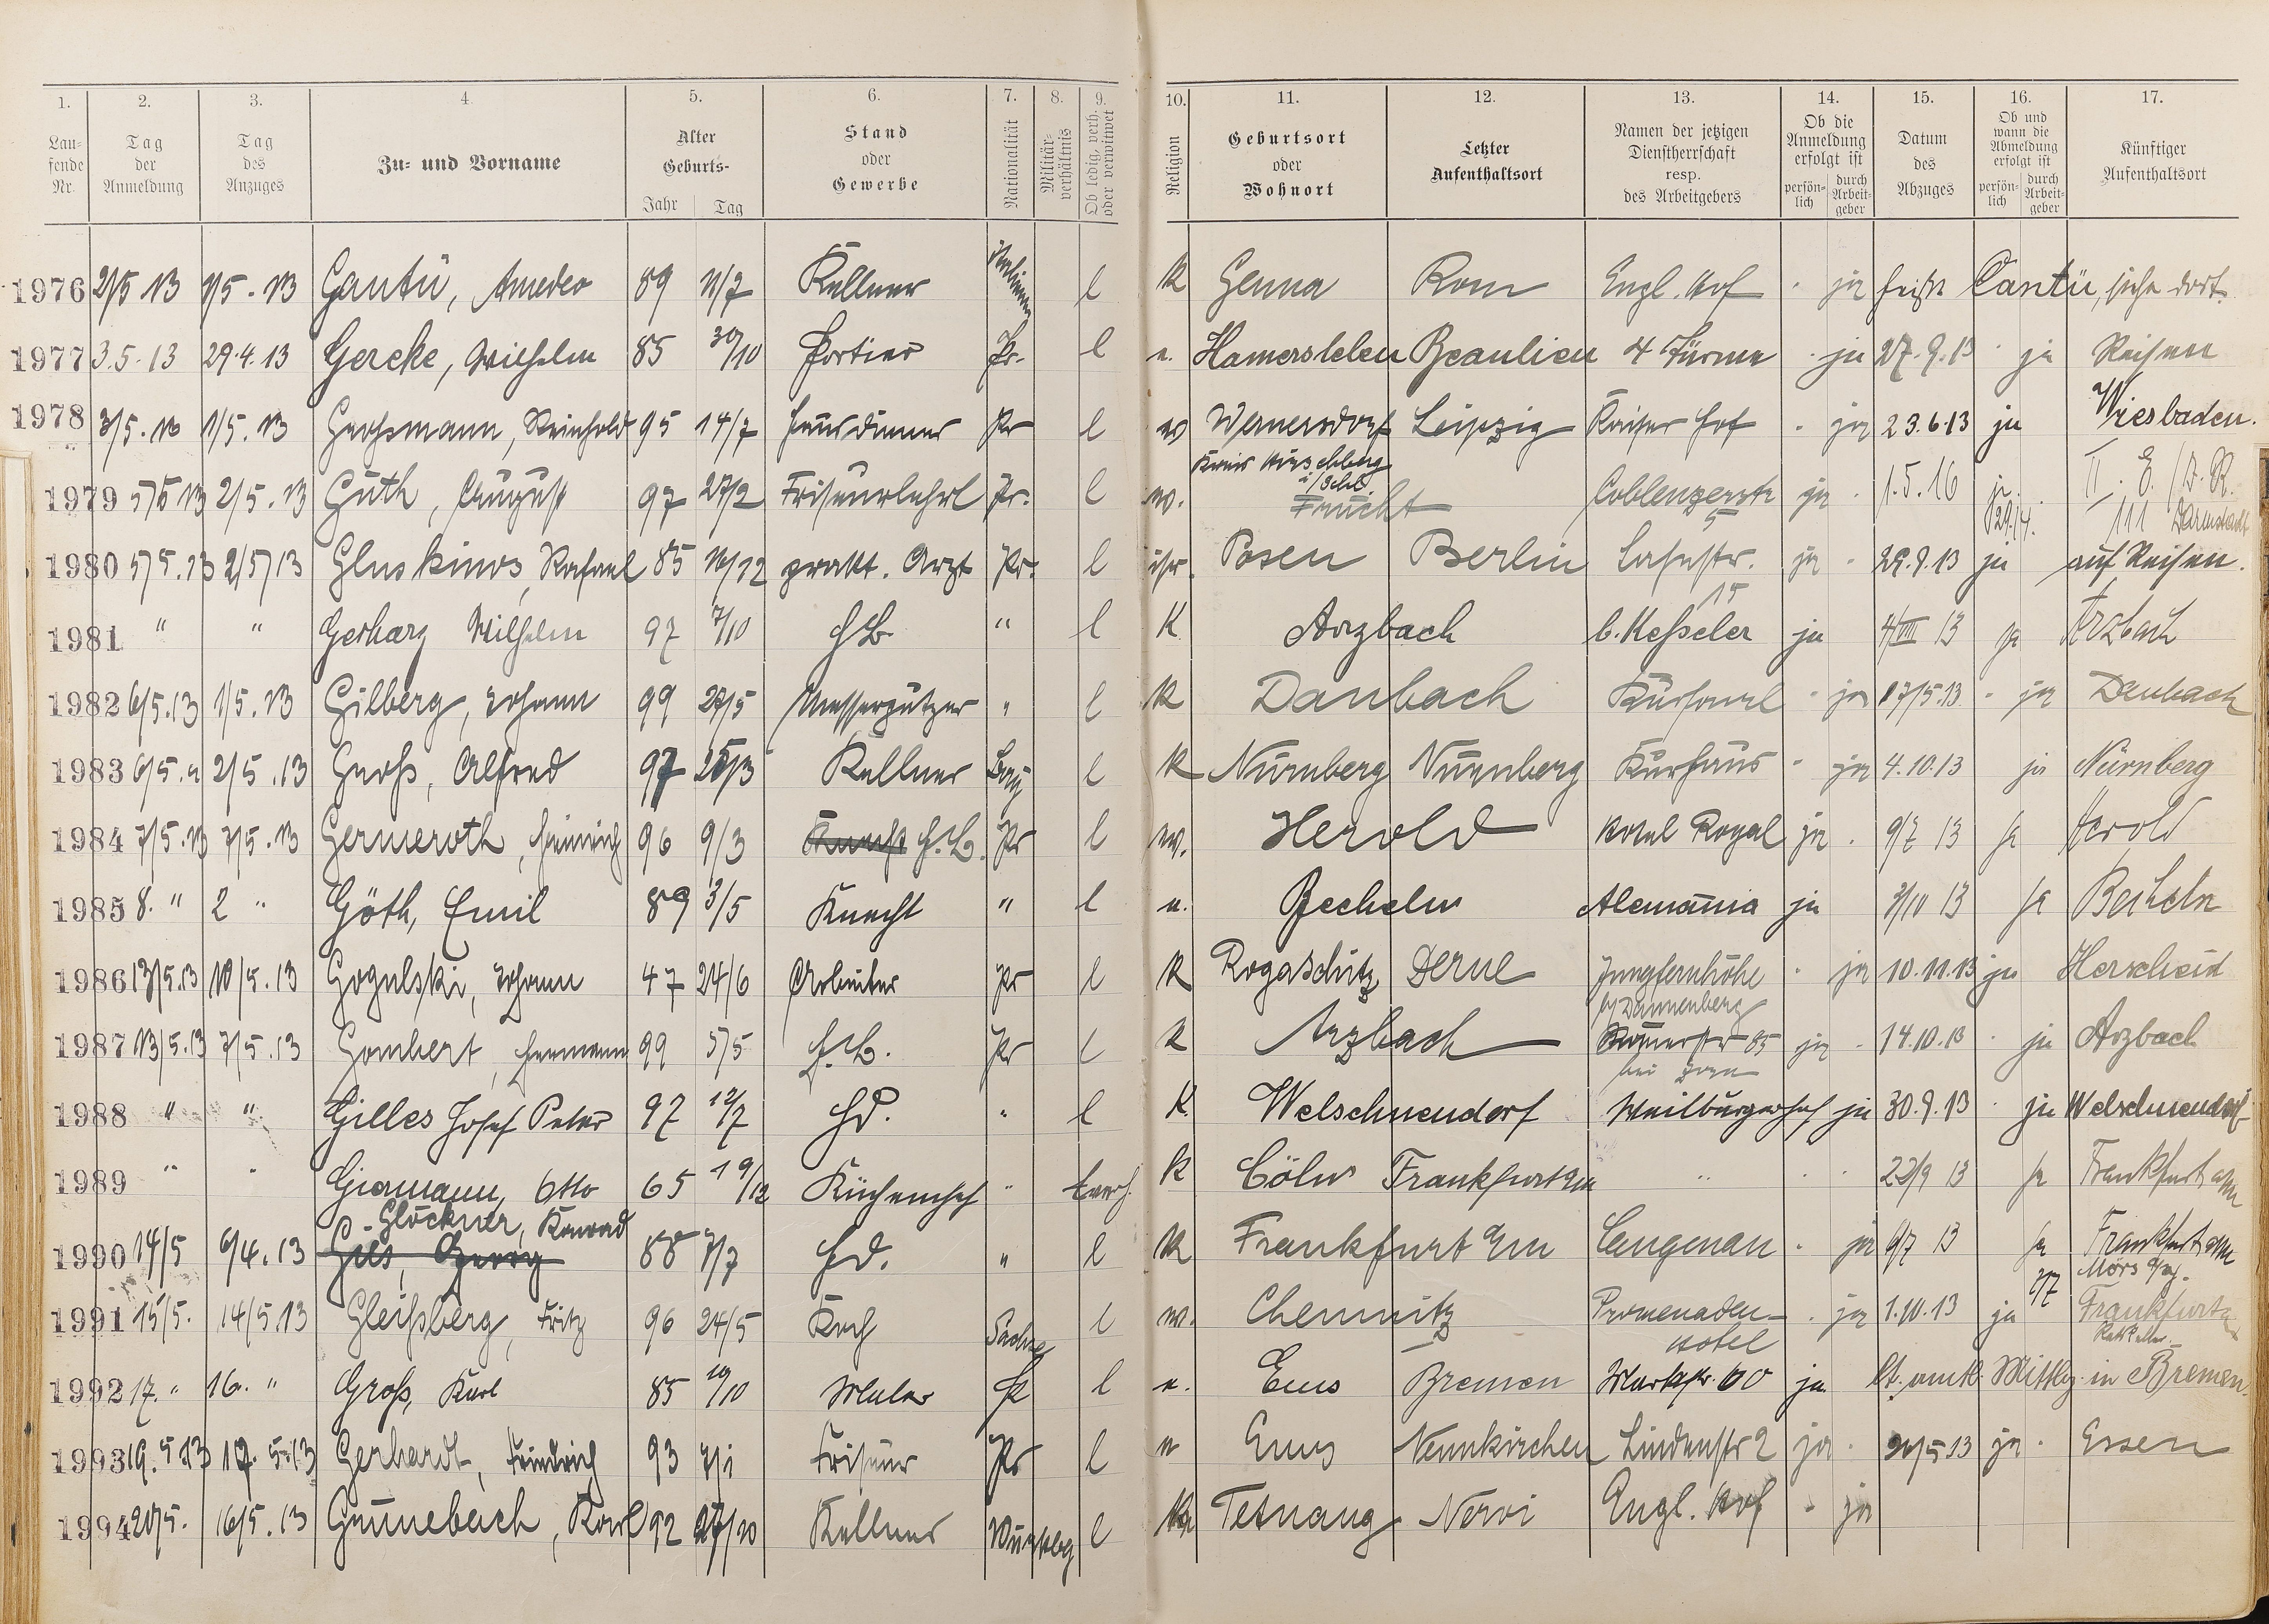 1. 2. 3. 4. 5. 6. 7. 8. 9. 10. 11. 12. 13. 14. 15. 16. 17.
Lau-
fende
Nr.
Tag
der
Anmeldung
Tag
des
Anzuges
Zu- und Vorname
Alter
Geburts-
Jahr Tag
Stand
oder
Gewerbe
Nationalität
Militär-
verhältnis
Ob ledig, verh.
oder verwitwet
Religion
Geburtsort
oder
Wohnort
Letzter
Aufenthaltsort
Namen der jetzigen
Dienstherrschaft
resp.
des Arbeitgebers
Ob die
Anmeldung
erfolgt ist
persön-
lich
durch
Arbeit-
geber
Datum
des
Abzuges
Ob und
wann die
Abmeldung
erfolgt ist
persön-
lich
durch
Arbeit-
geber
Künftiger
Aufenthaltsort
1976 2/5 13 1/5. 13 Gantü, Amedeo 89 11/7 Kellner Italiener l K Genua Rom Engl. Hof - ja heißt Cantü, siehe dort.
1977 3.5.13 29.4.13 Gercke, Wilhelm 85 30/10 Portier Pr. l e. Hamersleben Beaulieu 4 Türme - ja 27.9.13 - ja Reisen
1978 3/5. 13 1/5. 13 Reinhold 95 14/7 Hausdiener Pr l ev Wernersdorf Leipzig Kaiser Hof - ja 23.6.13 ja Wiesbaden.
Kreis Hirschberg
i/Schl.
1979 5/5 13 2/5. 13 Güth, August 97 27/2 Friseurlehrl Pr. l ev. Frücht Coblenzerstr 5 ja - 1.5.16 ja 29/4. II. E. / I. R. 111 Darmstadt
1980 5/5.13 2/5 13 Gluskinos, Rafael 85 12 prakt. Arzt Pr. l isr. Posen Berlin Lahnstr. 15 ja - 29.9.13 ja auf Reisen.
1981 " " Gerharz Wilhelm 97 7/10 HB " l K Arzbach b. Keßeler ja 4/VIII 13 ja Arzbach
1982 6/5.13 1/5. 13 Gilberg, Johann 99 27/5 Messerputzer " l K Daubach Kursaal - ja 17/5.13 - ja Daubach
1983 6/5. 2/5.13 Groß, Alfred 97 25/3 Kellner Bay l K Nürnberg Nürnberg Kurhaus - ja 4.10.13 ja Nürnberg
1984 7/5.13 7/5.13 Germeroth, Heinrich 96 9/3 Knecht H.B. Pr l ev. Herold Hotel Royal ja - 9/7 13 ja Herold
1985 8. " 2 " Göth, Emil 89 3/5 Knecht " l e. Becheln Alemannia ja 13 ja Becheln
1986 13/5.13 10/5.13 Gogulski, Johann 47 24/6 Arbeiter Pr l K Rogaschütz Derne Jungfernhöhe - ja 10.11.13 ja Herscheid
b/ Dannenberg
1987 13/5.13 7/5.13 Gombert, Hermann 99 5/5 H.B. Pr l K Arzbach Römerstr 85 ja - 14.10.13 - ja Arzbach
1988 " " Gilles Josef Peter 97 12/7 Hd. " l K. Welschneudorf Weilburgerhof ja 30.9.13 - ja Welschneudorf
1989 " " Giermann, Otto 65 19/12 Küchenchef " verh. k Cöln Frankfurt a/m " - - 22/9 13 ja Frankfurt a/m
Glöckner, Konrad
1990 14/5 6/4.13 Gies, Georg 88 7/7 Hd. " l K Frankfurt a/m Langenau - ja 9/7 13 ja Frankfurt a/m
1991 15/5. 14/5.13 Gleißberg, Fritz 96 24/5 Koch Sachse l ev. Chemnitz Promenaden-Hotel - ja 1.10.13 ja Frankfurt
1992 17. " 16. " Groß, Karl 85 10/10 Maler Pr l e. Ems Bremen Marktstr. 60 ja lt. amtl. Mittlg. in Bremen.
1993 19.5.13 17.5.13 Gerhardt, Friedrich 93 7/1 Friseur Pr l e Ems Neunkirchen Lindenstr 2 ja - 13 ja - Essen
1994 20/5. 16/5.13 Grünebach, Karl 92 27/10 Kellner Württbg l K Tetnang Nervi Engl. Hof - ja